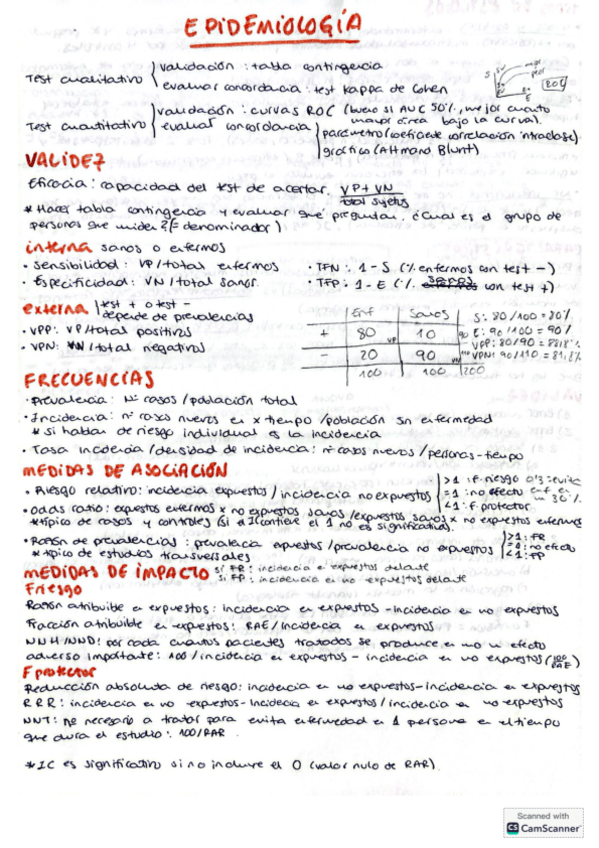 EPIDEMIOLOGÍA
Test cualitativo { validación : tabla contingencia
evaluar concordancia : test Kappa de Cohen
Test cuantitativo { validación : curvas ROC (bueno si AUC 50%, mejor cuanto
mayor área bajo la curva).
evaluar concordancia { paramétro (coeficiente correlación intraclase)
gráfico (Altmand Blunt)
VALIDEZ
Eficacia : capacidad del test de acertar. VP+VN / total sujetos
* Hacer tabla contingencia y evaluar que preguntan. ¿Cual es el grupo de
personas que miden? (E denominador)
interna sanos o enfermos
· Sensibilidad : VP/total enfermos · TFN : 1 - S (% enfermos con test -)
· Especificidad : VN/total sanos. · TFP : 1 - E (% con test +)
externa | test + o test -
depende de prevalencias
· VPP : VP/total positivos
· VPN : VN/total negativos
Enf Sanos
+ 80 VP 10 90
- 20 90 VN 110
100 100 200
S : 80/100 = 80%
E : 90/100 = 90%
VPP : 80/90 = 88'8%
VPN : 90/110 = 81,8%
FRECUENCIAS
· Prevalencia : Nº casos/población total
· Incidencia : nº casos nuevos en x tiempo/población sin enfermedad
* si hablan de riesgo individual es la incidencia
· Tasa incidencia/densidad de incidencia : nº casos nuevos/personas-tiempo
MEDIDAS DE ASOCIACIÓN
· Riesgo relativo : incidencia expuestos/incidencia no expuestos | >1 : f. riesgo
=1 : no efecto
<1 : f. protector
0'3 = evita enf. en un 30%
· Odds ratio : expuestos enfermos x no expuestos sanos/expuestos sanos x no expuestos enfermos
* típico de casos y controles (si contiene el 1 no es significativo).
· Razón de prevalencias : prevalencia expuestos/prevalencia no expuestos | >1 : FR
=0 : no efecto
<1 : FP
* típico de estudios transversales
MEDIDAS DE IMPACTO si FR : incidencia en expuestos delante
si FP : incidencia en no expuestos delante
F riesgo
Razón atribuible en expuestos : incidencia en expuestos - incidencia en no expuestos
Fracción atribuible en expuestos : RAE/incidencia en expuestos
NNH/NND : por cada cuantos pacientes tratados se produce en uno un efecto
adverso importante : 100/incidencia en expuestos - incidencia en no expuestos (100/RAE)
F protector
Reducción absoluta de riesgo : incidencia en no expuestos - incidencia en expuestos
RRR : incidencia en no expuestos - incidencia en expuestos/incidencia en no expuestos
NNT : nº necesario a tratar para evitar enfermedad en 1 persona en el tiempo
que dura el estudio : 100/RAR
* IC es significativo si no incluye el 0 (valor nulo de RAR).
Scanned with
CS CamScanner